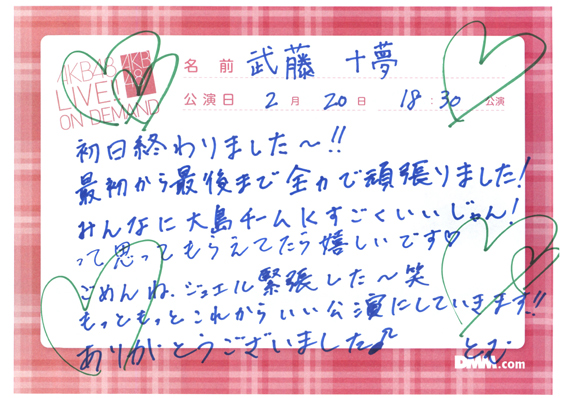 AKB48
LIVE!!
ON DEMAND
AKB
48
名前 武藤 十夢
公演日 2月 20日 18:30 公演
初日終わりました〜!!
最初から最後まで全力で頑張りました!
みんなに大島チームKすごくいいじゃん!
って思ってもらえてたら嬉しいです♡
ごめんね、ジュエル緊張した〜笑
もっともっとこれからいい公演にしていきます!!
ありがとうございました♪
とむ
DMM.com